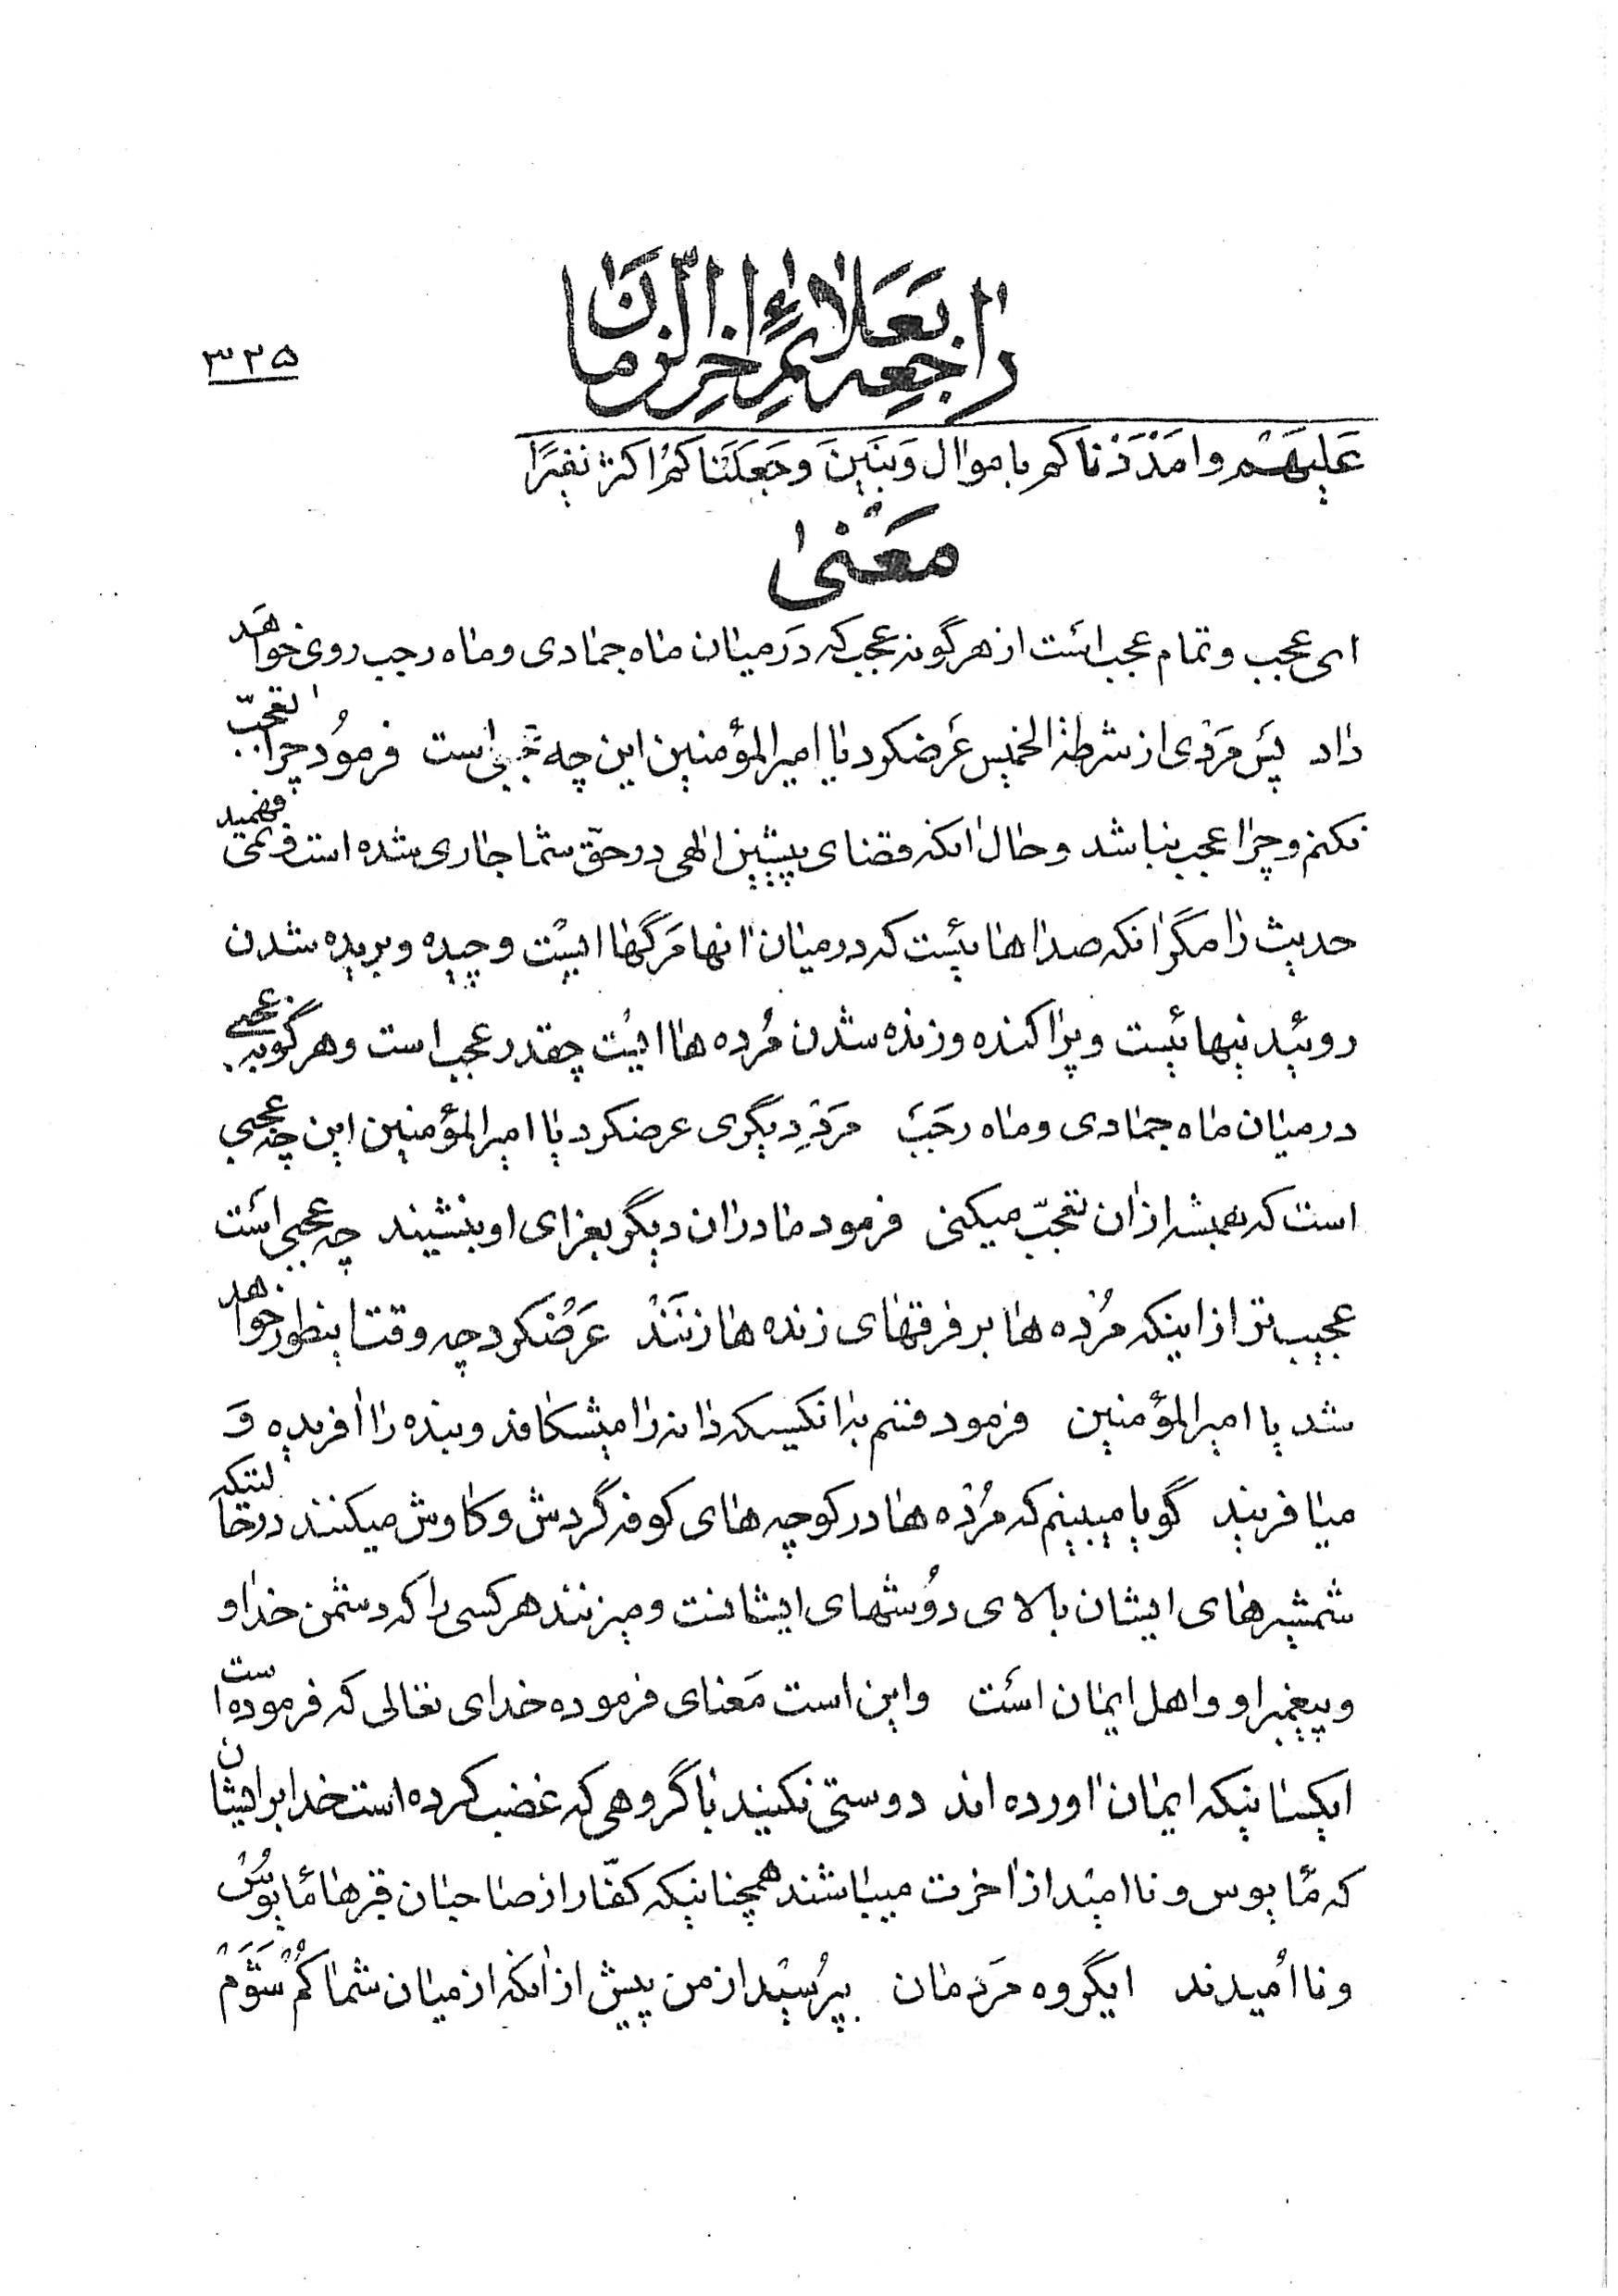 راجعه بعلائم اخر الزمان
۳۲۵
عَلَیهَم وامَدَدْناکم باموال وَبَنینَ وجَعَلَناکمُ اکثر نفیرًا
مَعْنی
ای عجب وتمام عجب است از هرگونه عجب که دَرمیان ماه جمادی وماه رجب روی خواهد
داد پَس مَردی از شرطة الخمیس عَرضکرد یا امیرالمؤمنین این چه عجبی است فرمُود چرا تعجّب
نکنم وچرا عجب نباشد وحال انکه قضای پیشین الهی در حقّ شما جاری شده است ونمی فهمید
حدیث را مگر انکه صداهائیست که درمیان انها مَرگها ایست وچیده وبریده شدن
روئید نیهائیست وپراکنده وزنده شدن مُرده ها ایست چقدر عجب است وهرگونه عجبی
درمیان ماه جمادی وماه رجَبَ مَردِ دیگری عرضکرد یا امیرالمؤمنین این چه عجبی
است که همیشه ازان تعجّب میکنی فرمود مادران دیگر بعزای او بنشیند چه عجبی است
عجیب تر از اینکه مُرده ها بر فرقهای زنده ها زنَنَدْ عَرَضکرد چه وقت اینطور خواهد
شد یا امیرالمؤمنین فرمود قسم به انکسیکه دانه را میشکافد وبنده را افریده وَ
میافریند گویا میبینم که مُرده ها در کوچه های کوفه گردش وکاوش میکنند درحالتیکه
شمشیرهای ایشان بالای دوُشهای ایشانست ومیزنند هرکسی را که دشمن خدا و
وپیغمبر او واهل ایمان است واین است مَعنای فرموده خدای تعالی که فرموده است
ایکسانیکه ایمان اورده اند دوستی نکنید با گروهی که غضب کرده است خدا بر ایشان
که مأیوس وناامید از اخرت میباشند همچنانیکه کفّار از صاحبان قبرها مأیوُس
وناامُیدند ایگروه مَردمان بپرُسید از من پیش از انکه از میان شما کُم شَوَم